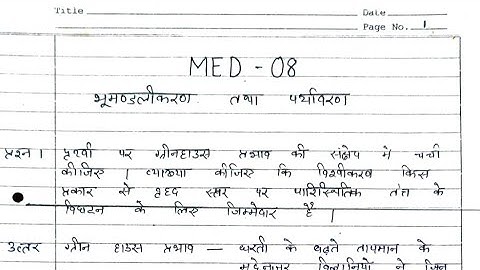 Title Date
Page No. 1
MED - 08
भूमण्डलीकरण तथा पर्यावरण
प्रश्न । पृथ्वी पर ग्रीनहाउस प्रभाव की संक्षेप में चर्चा
कीजिए । व्याख्या कीजिए कि वैश्वीकरण किस
प्रकार से वृहद स्तर पर पारिस्थितिक तंत्र के
विघटन के लिए जिम्मेदार है ।
उत्तर ग्रीन हाउस प्रभाव — धरती के बढ़ते तापमान के